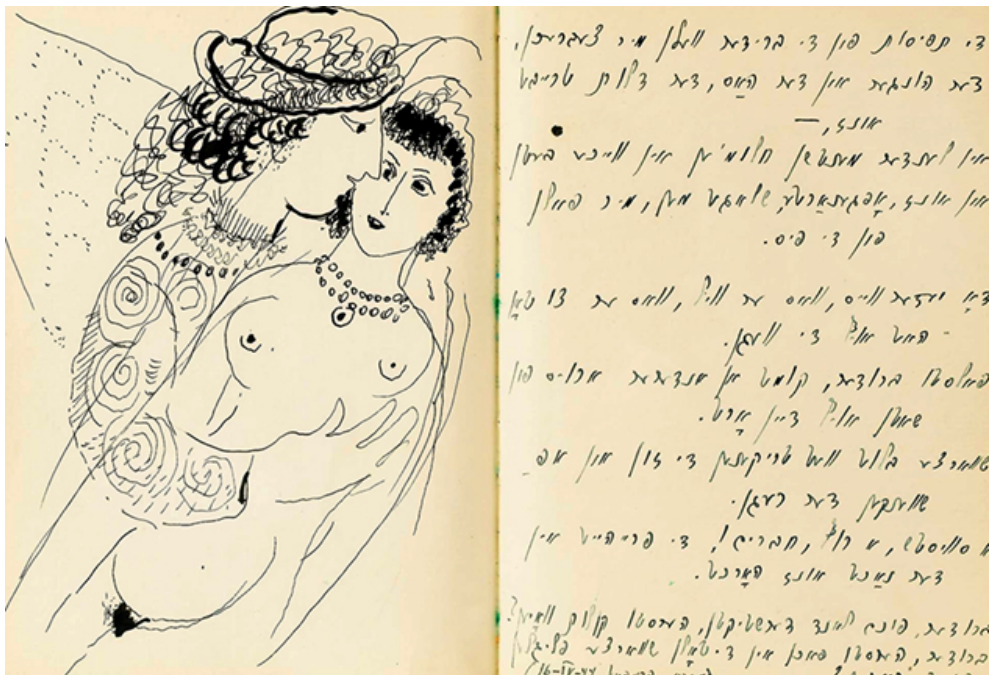 די תפיסות פון די ברידער וועלן מיר צעברעכן,
דער הונגער און דער האַס, דער דלות טרייבט
אונז, —
אין לענדער מענטשן חלומ'ען אין ווייכע בעטן
און אונז, אָפגענאַרטע, שלאגט מען, מיר פאלן
פון די פיס.
דאָ יעדער ווייס, וואס ער וויל, וואס ער צו טאָן
האט אויף די וועגן.
פאלסטו ברודער, קומט אן אנדערער ארויס פון
שאטן אויף דיין אָרט.
שווארצע בלוט וועט טריקענען די זון און אפ־
שווענקען דער רעגן.
א סוויסטש, א רוף, חברים! די פרייהייט אין
דער נאַכט אונז האָרכט.
ברודער, פונם לאנד דערשטיקטן, הערסטו קולות וואָיען?
ברודער, הערסטו פאכן אין די טאָלן שווארצע פליגלען
16-IV-44